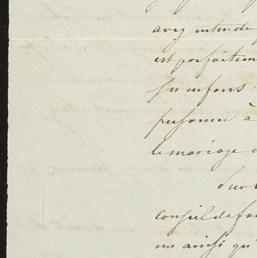 avez entendu
est parfaitem
ses enfans:
personne à
le mariage
Sur
Conseil de fa
uns ainsi qu'